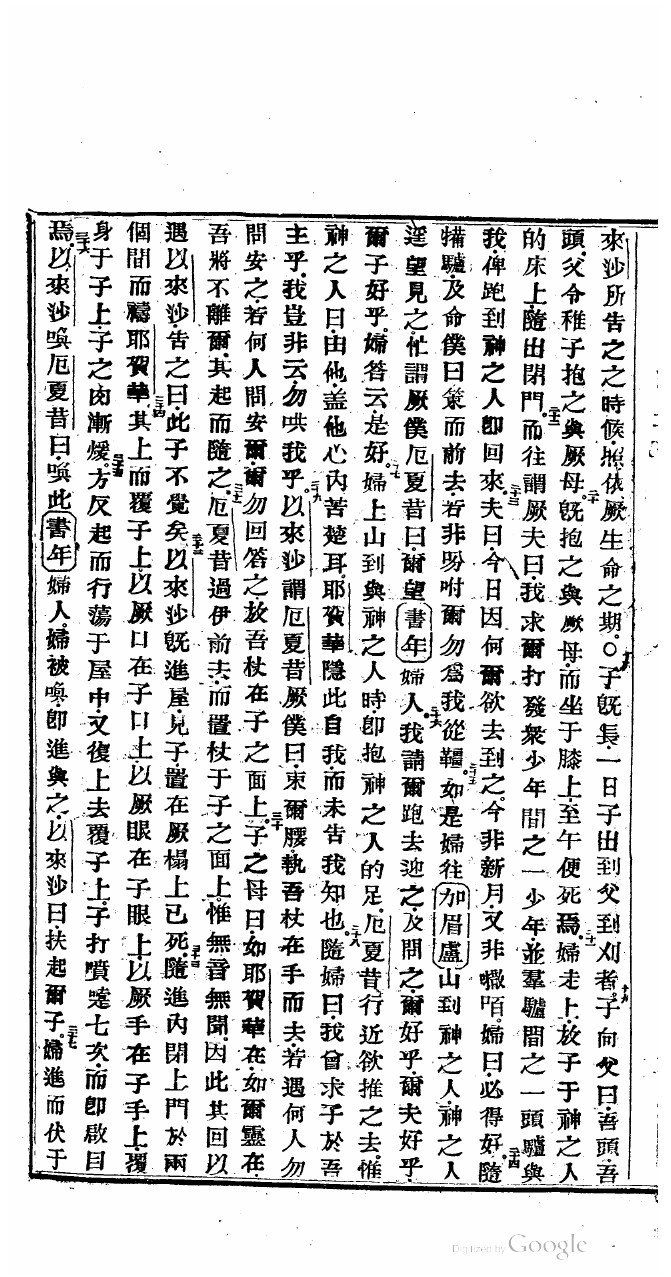 來沙所告之之時候照依厥生命之期〇子旣長一日子出到父到刈者十九子向父曰吾頭吾
頭父令稚子抱之與厥母二十旣抱之與厥母而坐于膝上至午便死焉二十一婦走上放子于神之人
的床上隨出閉門二十二而往謂厥夫曰我求爾打發衆少年間之一少年並羣驢間之一頭驢與
我俾跑到神之人卽回來二十三夫曰今日因何爾欲去到之今非新月又非嗽㖡婦曰必得好二十四隨
犕驢及命僕曰策而前去若非吩咐爾勿爲我從韁二十五如是婦往加眉盧山到神之人神之人
遥望見之忙謂厥僕厄夏昔曰爾望書年婦人二十六我請爾跑去迎之及問之爾好乎爾夫好乎
爾子好乎婦答云是好二十七婦上山到與神之人時卽抱神之人的足厄夏昔行近欲推之去惟
神之人曰由他盖他心內苦楚耳耶賀華隱此自我而未告我知也二十八隨婦曰我曾求子於吾
主乎我豈非云勿哄我乎二十九以來沙謂厄夏昔厥僕曰束爾腰執吾杖在手而去若遇何人勿
問安之若何人問安爾爾勿回答之放吾杖在子之面上三十子之母曰如耶賀華在如爾靈在
吾將不離爾其起而隨之三十一厄夏昔過伊前去而置杖于子之面上惟無言無聞因此其回以
遇以來沙告之曰此子不覺矣三十二以來沙旣進屋見子置在厥榻上已死三十三隨進內閉上門於兩
個間而禱耶賀華三十四其上而覆子上以厥口在子口上以厥眼在子眼上以厥手在子手上覆
身于子上子之肉漸煖三十五方反起而行蕩于屋中又復上去覆子上子打噴嚏七次而卽啟目
焉三十六以來沙喚厄夏昔曰喚此書年婦人婦被喚卽進與之以來沙曰扶起爾子三十七婦進而伏于
Digitized by Google